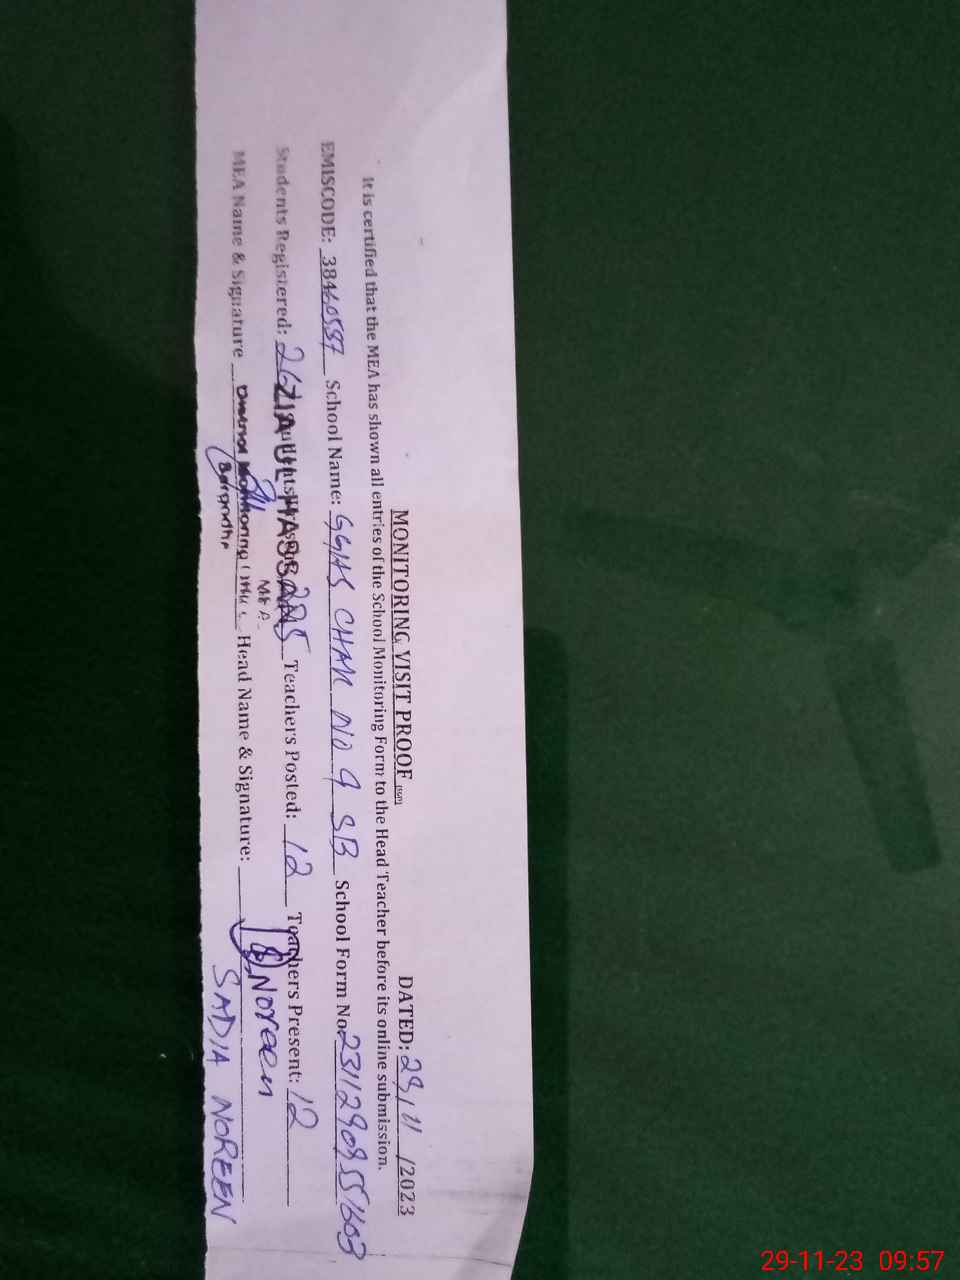 MONITORING VISIT PROOF (SSP)
DATED: 29/11/2023
It is certified that the MEA has shown all entries of the School Monitoring Form to the Head Teacher before its online submission.
EMISCODE: 38460587 School Name: GGHS CHAK NO 9 SB School Form No. 23112909551603
Students Registered: 267 Students 225 Teachers Posted: 12 Teachers Present: 12
ZIA UL HASSAN
MEA
MEA Name & Signature Head Name & Signature: Noreen
District Monitoring
Sargodha
SADIA NOREEN
29-11-23 09:57